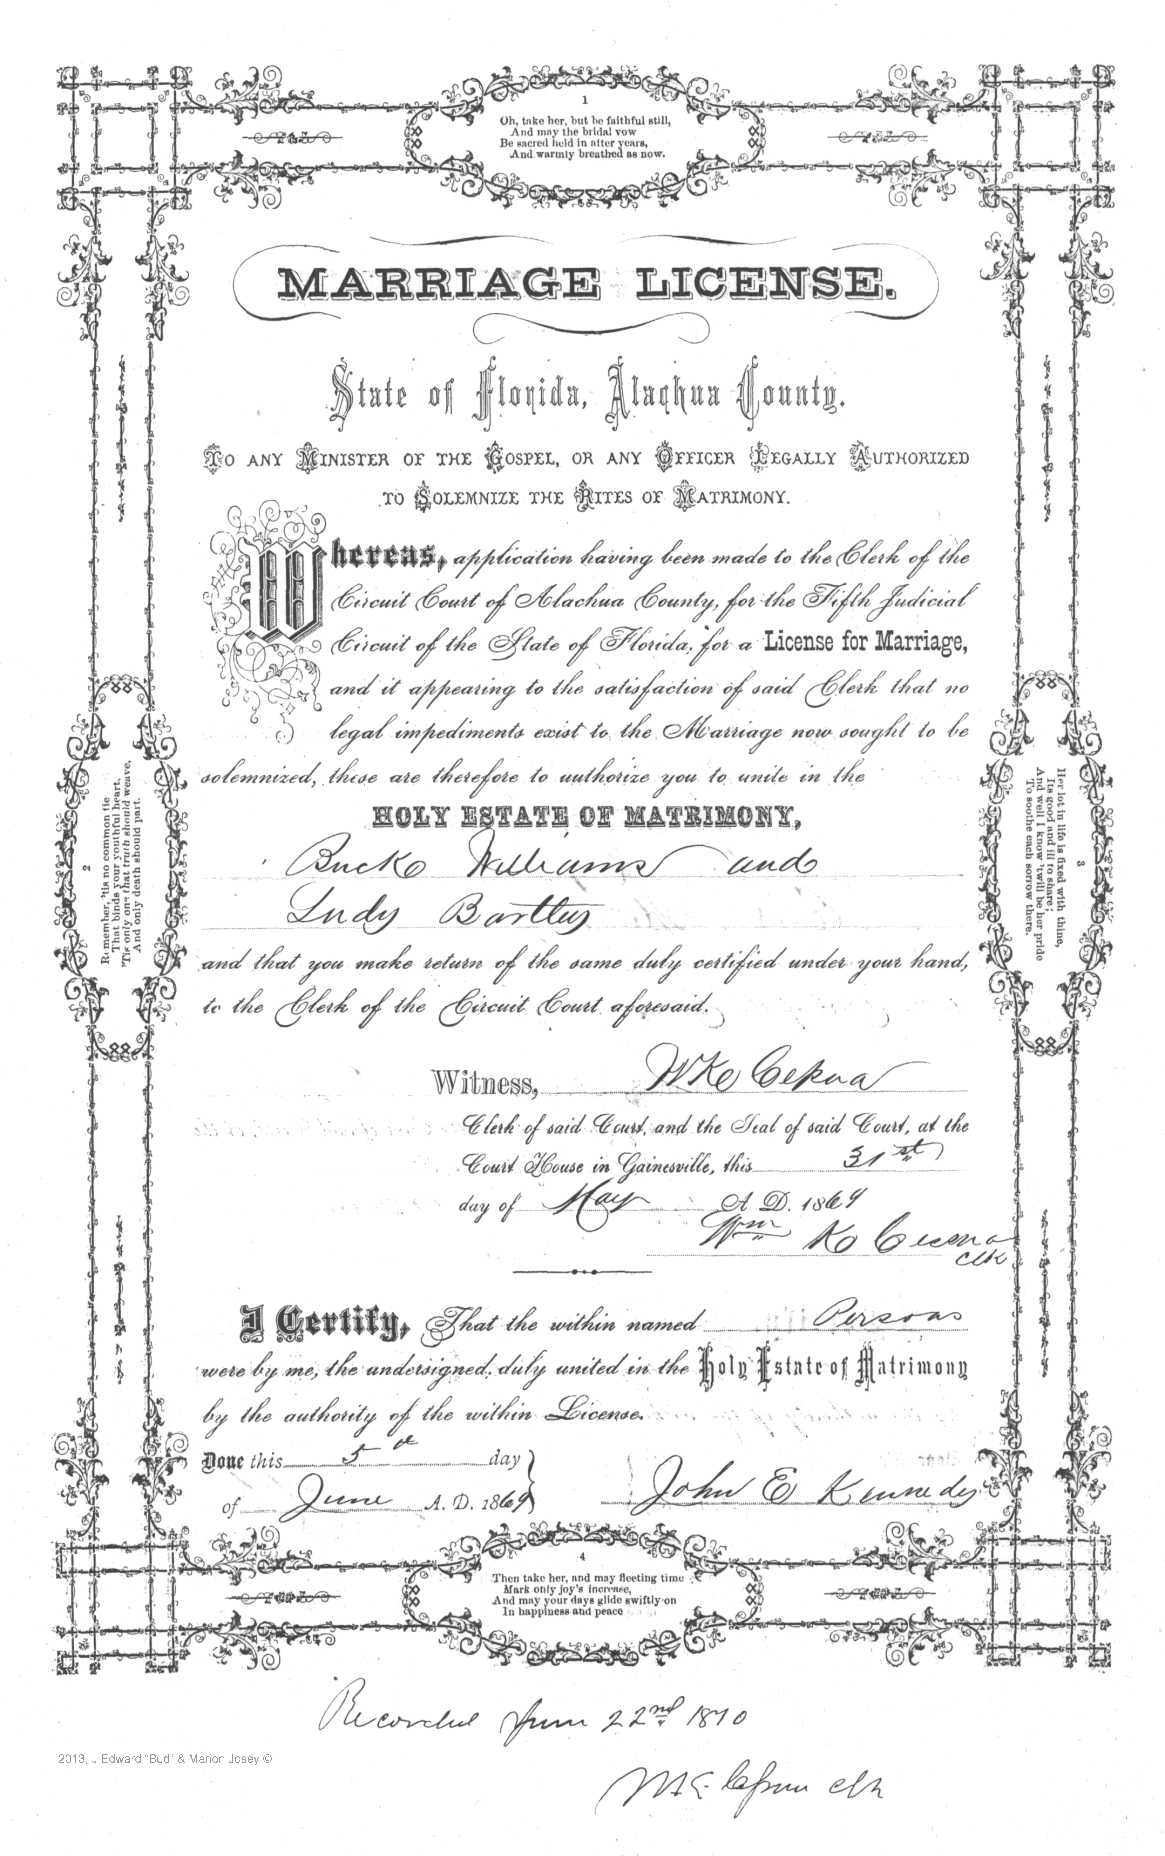 1
Oh, take her, but be faithful still,
And may the bridal vow
Be sacred held in after years,
And warmly breathed as now.
MARRIAGE LICENSE.
State of Florida, Alachua County.
TO ANY MINISTER OF THE GOSPEL, OR ANY OFFICER LEGALLY AUTHORIZED
TO SOLEMNIZE THE RITES OF MATRIMONY.
Whereas, application having been made to the Clerk of the
Circuit Court of Alachua County, for the Fifth Judicial
Circuit of the State of Florida, for a License for Marriage,
and it appearing to the satisfaction of said Clerk that no
legal impediments exist to the Marriage now sought to be
solemnized, these are therefore to authorize you to unite in the
HOLY ESTATE OF MATRIMONY,
Buck Williams and
Ludy
and that you make return of the same duly certified under your hand,
to the Clerk of the Circuit Court aforesaid.
Witness,
Clerk of said Court, and the Seal of said Court, at the
Court House in Gainesville, this 31st
day of May A. D. 1869
Wm K
clk
I Certify, That the within named Persons
were by me, the undersigned, duly united in the Holy Estate of Matrimony
by the authority of the within License.
Done this 5th day
of June A. D. 1869
John E Kennedy
2
Remember, 'tis no common tie
That binds your youthful heart,
'Tis only one that truth should weave,
And only death should part.
3
Her lot in life is fixed with thine,
Its good and ill to share;
And well I know 'twill be her pride
To soothe each sorrow there.
4
Then take her, and may fleeting time
Mark only joy's increase,
And may your days glide swiftly on
In happiness and peace
Recorded June 22nd 1870
clk
2013, J Edward "Bud" & Marion Josey ©